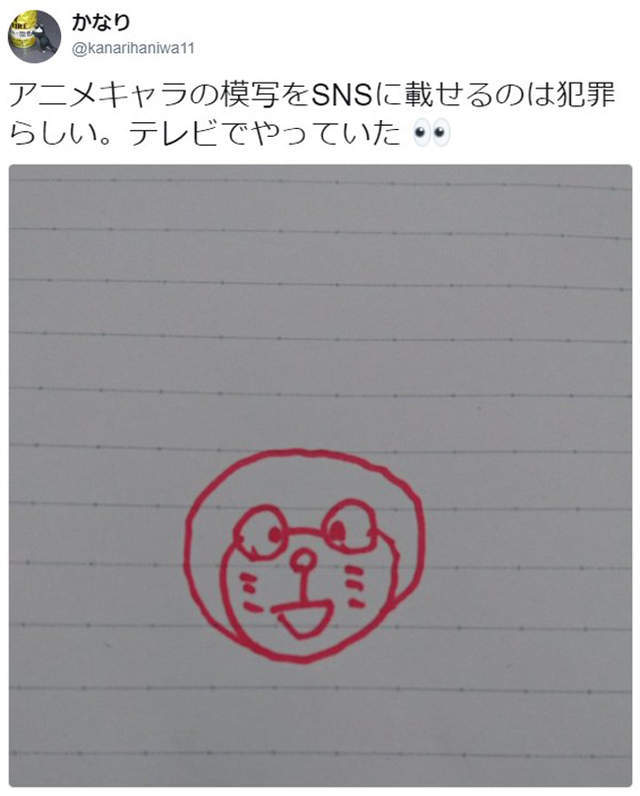 かなり
@kanarihaniwa11
アニメキャラの模写をSNSに載せるのは犯罪
らしい。テレビでやっていた 👀